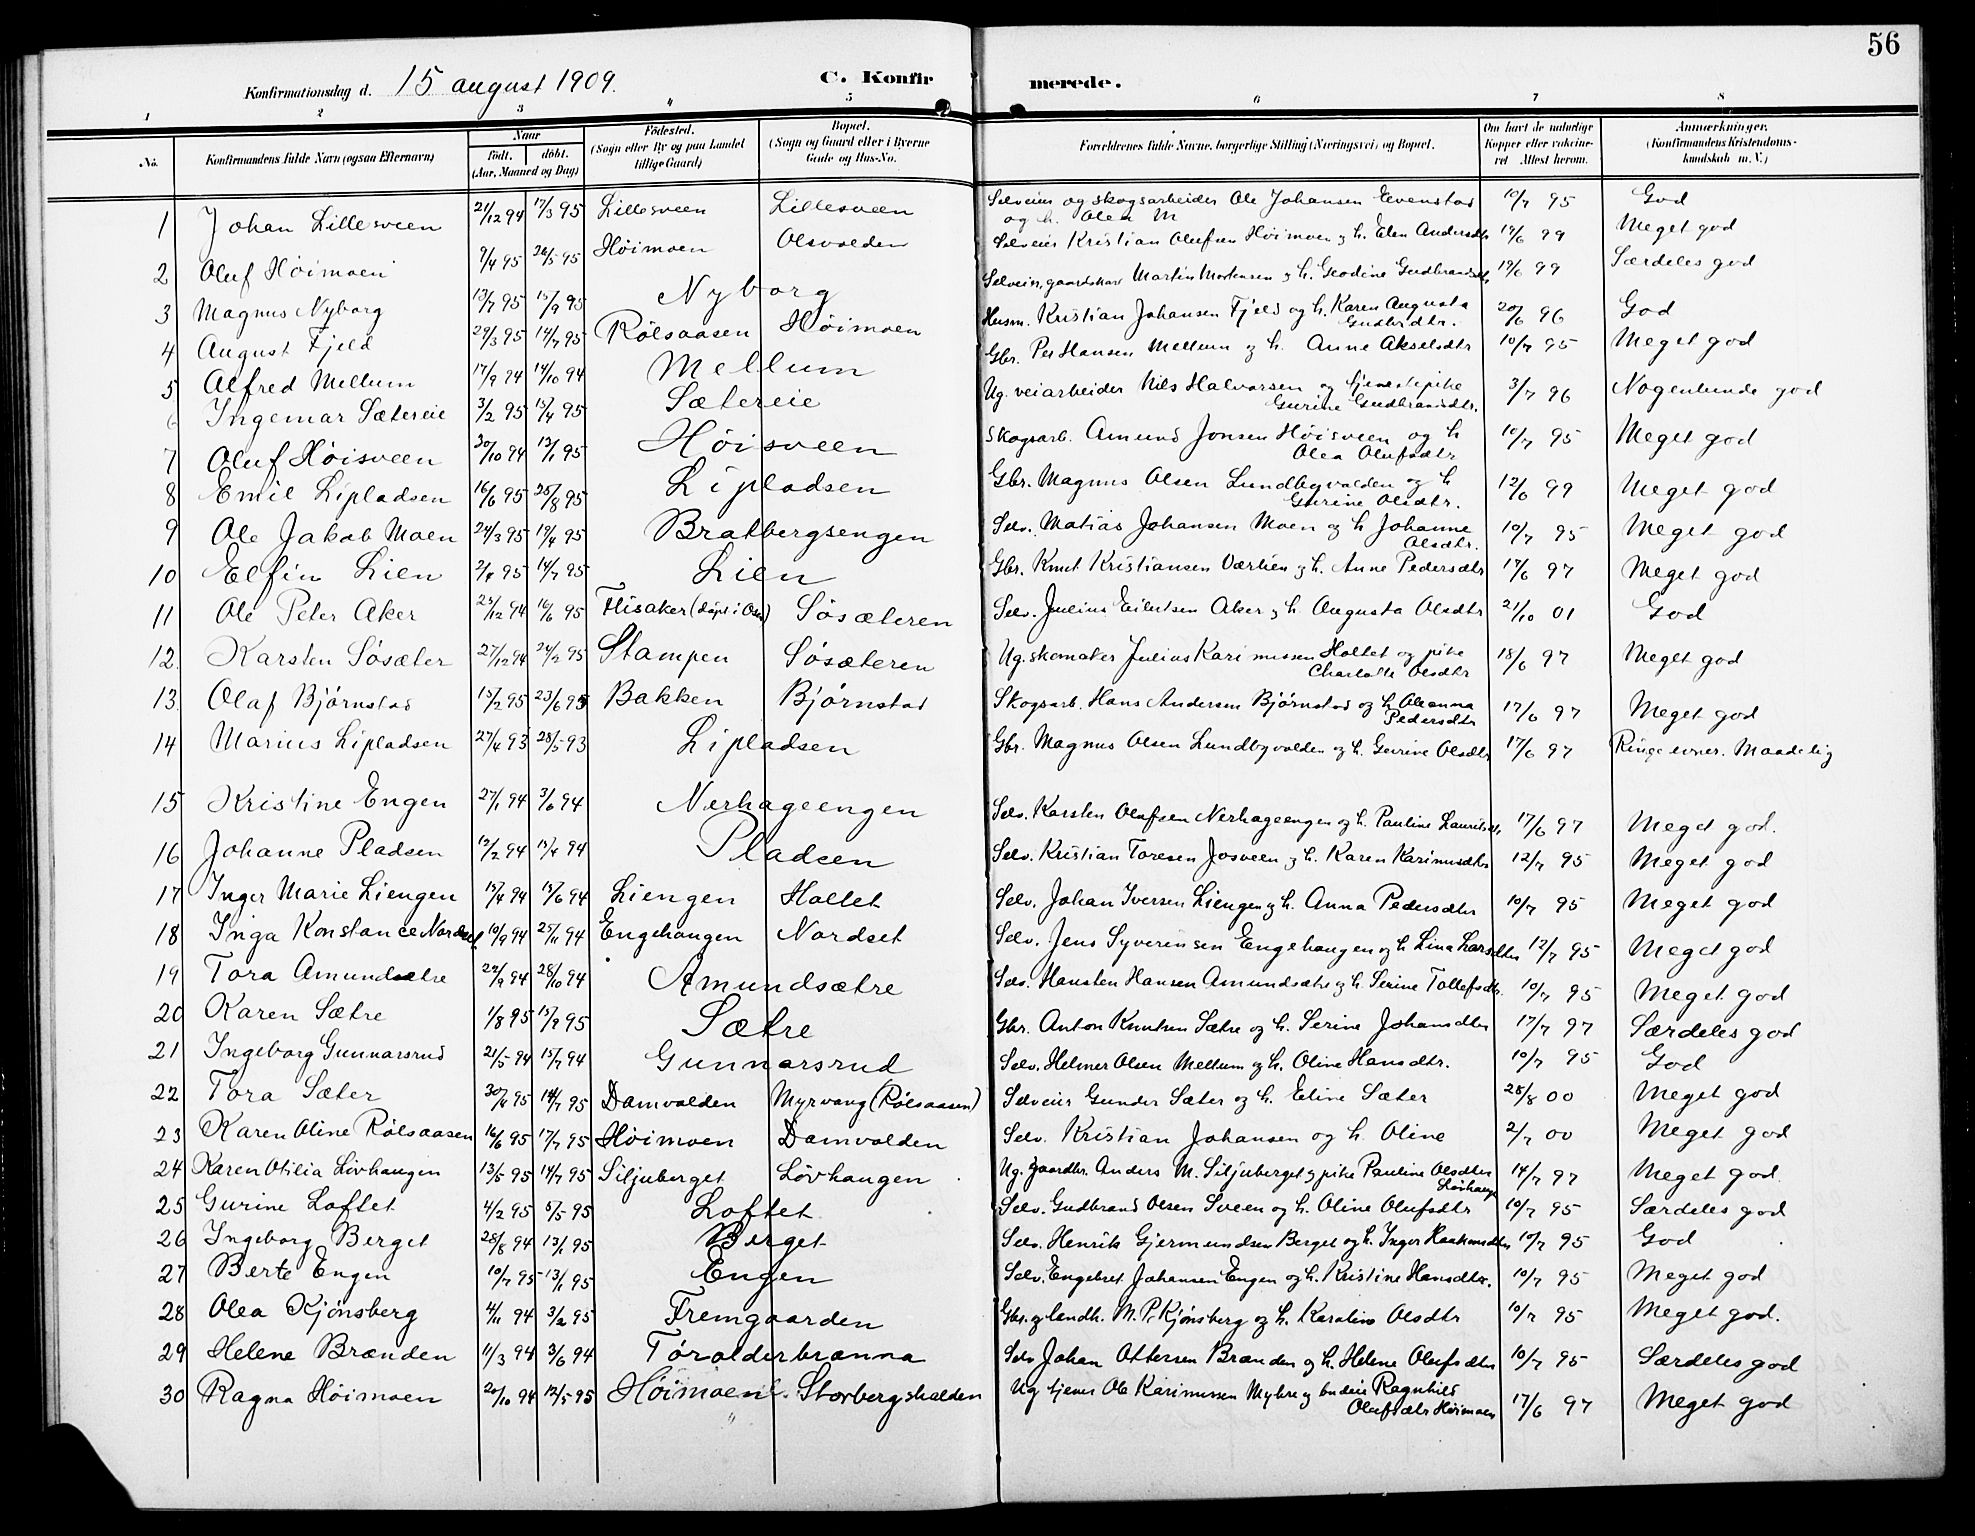 56
Konfirmationsdag d. 15 august 1909. C. Konfirmerede.
1 2 3 4 5 6 7 8
No. Konfirmandens fulde Navn (ogsaa Efternavn) Naar født. døbt. (Aar, Maaned og Dag) Fødested. (Sogn eller By og paa Landet tillige Gaard) Bopæl. (Sogn og Gaard eller i Byerne Gade og Hus-No. Forældrenes fulde Navne, borgerlige Stilling (Næringsvei) og Bopæl. Om havt de naturlige Kopper eller vakcineret Attest herom. Anmærkninger. (Konfirmandens Kristendomskundskab m. V.)
1 Johan Lillesveen 21/12 94 17/3 95 Lillesveen Lillesveen Selveier og skogsarbeider Ole Johansen Evenstad og h. Olea M 10/7 95 God
2 Oluf Høimoen 9/4 95 26/5 95 Høimoen Olsvolden Selveier Kristian Olufsen Høimoen og h. Elen Andersdtr 19/6 99 Meget god
3 Magnus Nyborg 13/7 95 15/9 95 Nyborg Selveier, gaardskar Martin Mortensen og h. Gudbrandsdtr 19/6 99 Særdeles god
4 August Fjeld 29/3 95 14/7 95 Rølsaasen Høimoen Husm. Kristian Johansen Fjeld og h. Karen Augusta Gudbrdtr. 20/6 96 God
5 Alfred Mellum 17/9 94 14/10 94 Mellum Gbr. Per Hansen Mellum og h. Anne Akselsdtr 10/7 95 Meget god
6 Ingemar Sætereie 3/2 95 15/4 95 Sætereie Ug. veiarbeider Nils Halvorsen og tjenestepike Gurine Gudbrandsdtr. 3/7 96 Nogenlunde god
7 Oluf Høisveen 30/10 94 13/1 95 Høisveen Skogsarb. Amund Jonsen Høisveen og h Olea Olufsdtr 10/7 95 Meget god
8 Emil Lipladsen 16/6 95 25/8 95 Lipladsen Gbr. Magnus Olsen Lundbyvolden og h Gurine Olsdtr. 12/6 99 Meget god
9 Ole Jakob Moen 24/3 95 19/4 95 Bratbergsengen Selv. Matias Johansen Moen og h Johanne Olsdtr. 10/7 95 Meget god
10 Elfin Lien 2/4 95 14/7 95 Lien Gbr. Knut Kristiansen Værlien og h. Anne Pedersdtr 17/6 97 Meget god
11 Ole Peter Aker 25/12 94 16/6 95 Flisaker (døpt i Osen) Søsæteren Selv. Julius Eilertsen Aker og h. Augusta Olsdtr 21/10 01 God
12. Karsten Søsæter 27/12 94 24/2 95 Stampen Søsæteren Ug. skomaker Julius Karimussen Holtet og pike Charlotte Olsdtr 18/6 97 Meget god
13. Olaf Bjørnstad 15/2 95 23/6 95 Bakken Bjørnstad Skogsarb. Hans Andersen Bjørnstad og h. Oleanna Pedersdtr 17/6 97 Meget god
14 Marius Lipladsen 27/4 93 28/5 93 Lipladsen Gbr. Magnus Olsen Lundbyvolden og h. Gurine Olsdtr 17/6 97 Ringe evner. Maadelig
15 Kristine Engen 27/1 94 3/6 94 Nerhageengen Selv. Karsten Olufsen Nerhageengen og h. Pauline Lauritsdtr 17/6 97 Meget god.
16 Johanne Pladsen 12/2 94 15/4 94 Pladsen Selv. Kristian Toresen Josveen og h. Karen Karimusdtr 12/7 95 Meget god
17 Inger Marie Liengen 15/4 94 13/6 94 Liengen Holtet Selv. Johan Iversen Liengen og h. Anna Pedersdtr 10/7 95 Meget god
18 Inga Konstance Nordset 10/9 94 25/11 94 Engehaugen Nordset Selv. Jens Syverinsen Engehaugen og h Lina Larsdtr 12/7 95 Meget god
19 Tora Amundsætre 22/9 94 28/10 94 Amundsætre Selv. Hansten Hansen Amundsætre og h. Serine Tollefsdtr. 10/7 95 Meget god
20 Karen Sætre 1/8 95 15/9 95 Sætre Gbr. Anton Knutsen Sætre og h. Serine Johansdtr 17/7 97 Særdeles god
21 Ingeborg Gunnarsrud 21/5 94 15/7 94 Gunnarsrud Selv. Helmer Olsen Mellum og h. Oline Hansdtr. 10/7 95 God
22 Tora Sæter 30/4 95 14/7 95 Damvolden Myrvang (Rølsaasen) Selveier Gunder Sæter og h. Eline Sæter 28/8 00 Meget god
23 Karen Oline Rølsaasen 16/6 95 17/7 95 Høimoen Damvolden Selv. Kristian Johansen og h. Oline 2/7 00 Meget god
24 Karen Otilia Løvhaugen 13/5 95 14/7 95 Siljuberget Løvhaugen Ug. gaardbr. Anders M. Siljuberget og pike Pauline Olsdtr Løvhaugen 14/7 97 Meget god.
25 Gurine Loftet 4/2 95 5/5 95 Loftet Selv. Gudbrand Olsen Sveen og h. Oline Olufsdtr 10/7 95 Særdeles god
26 Ingeborg Berget 28/8 94 13/1 95 Berget Selv. Henrik Gjermundsen Berget og h. Inger Haakonsdtr 10/7 95 God
27 Berte Engen 10/7 95 13/1 95 Engen Selv. Engebret Johansen Engen og h. Kristine Hansdtr. 10/7 95 Meget god
28 Olea Kjønsberg 4/11 94 3/2 95 Fremgaarden Gbr. og landh. M. P. Kjønsberg og h. Karoline Olsdtr 10/7 95 Meget god.
29 Helene Brænden 11/3 94 3/6 94 Tørolderbrænna Selv Johan Ottersen Brænden og h. Helene Olufsdtr 10/7 95 Særdeles god
30 Ragna Høimoen 20/10 94 12/5 95 Høimoen Storbergshalden Ug tjener Ole Karimussen Myhre og budeie Ragnhild Olufsdtr Høimoen 17/6 97 Meget god